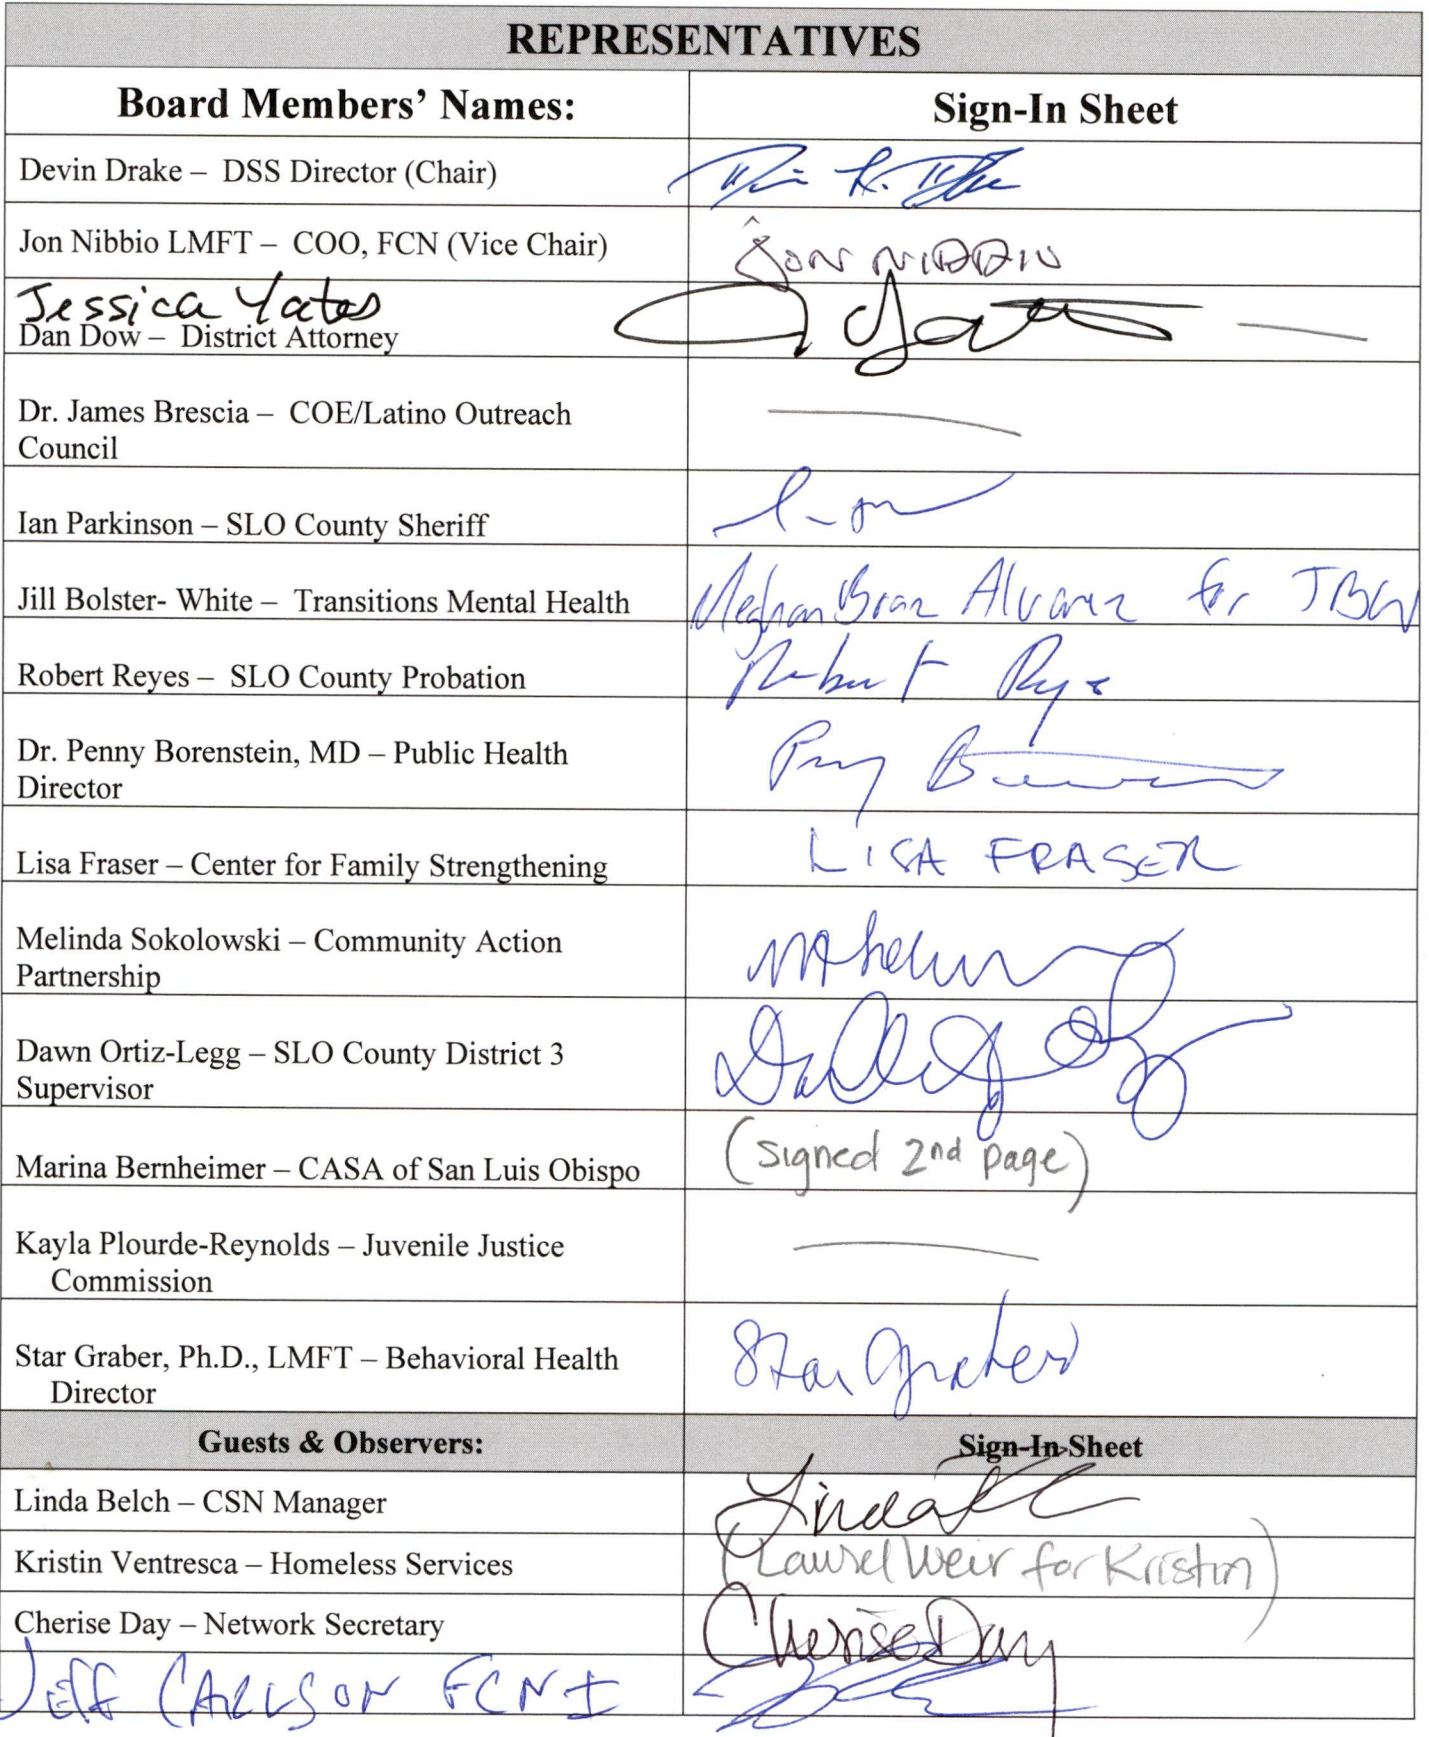 REPRESENTATIVES
Board Members' Names: Sign-In Sheet
Devin Drake – DSS Director (Chair)
Jon Nibbio LMFT – COO, FCN (Vice Chair) JON NIBBIO
Jessica Yates
Dan Dow – District Attorney
Dr. James Brescia – COE/Latino Outreach
Council
Ian Parkinson – SLO County Sheriff
Jill Bolster- White – Transitions Mental Health Meghan Braz Alvarez for JBW
Robert Reyes – SLO County Probation Robert Reyes
Dr. Penny Borenstein, MD – Public Health
Director
Lisa Fraser – Center for Family Strengthening LISA FRASER
Melinda Sokolowski – Community Action
Partnership
Dawn Ortiz-Legg – SLO County District 3
Supervisor
Marina Bernheimer – CASA of San Luis Obispo (signed 2nd page)
Kayla Plourde-Reynolds – Juvenile Justice
Commission
Star Graber, Ph.D., LMFT – Behavioral Health Star Graber
Director
Guests & Observers: Sign-In-Sheet
Linda Belch – CSN Manager Linda
Kristin Ventresca – Homeless Services (Laurel Weir for Kristin)
Cherise Day – Network Secretary Cherise Day
JEFF CARLSON FCNI